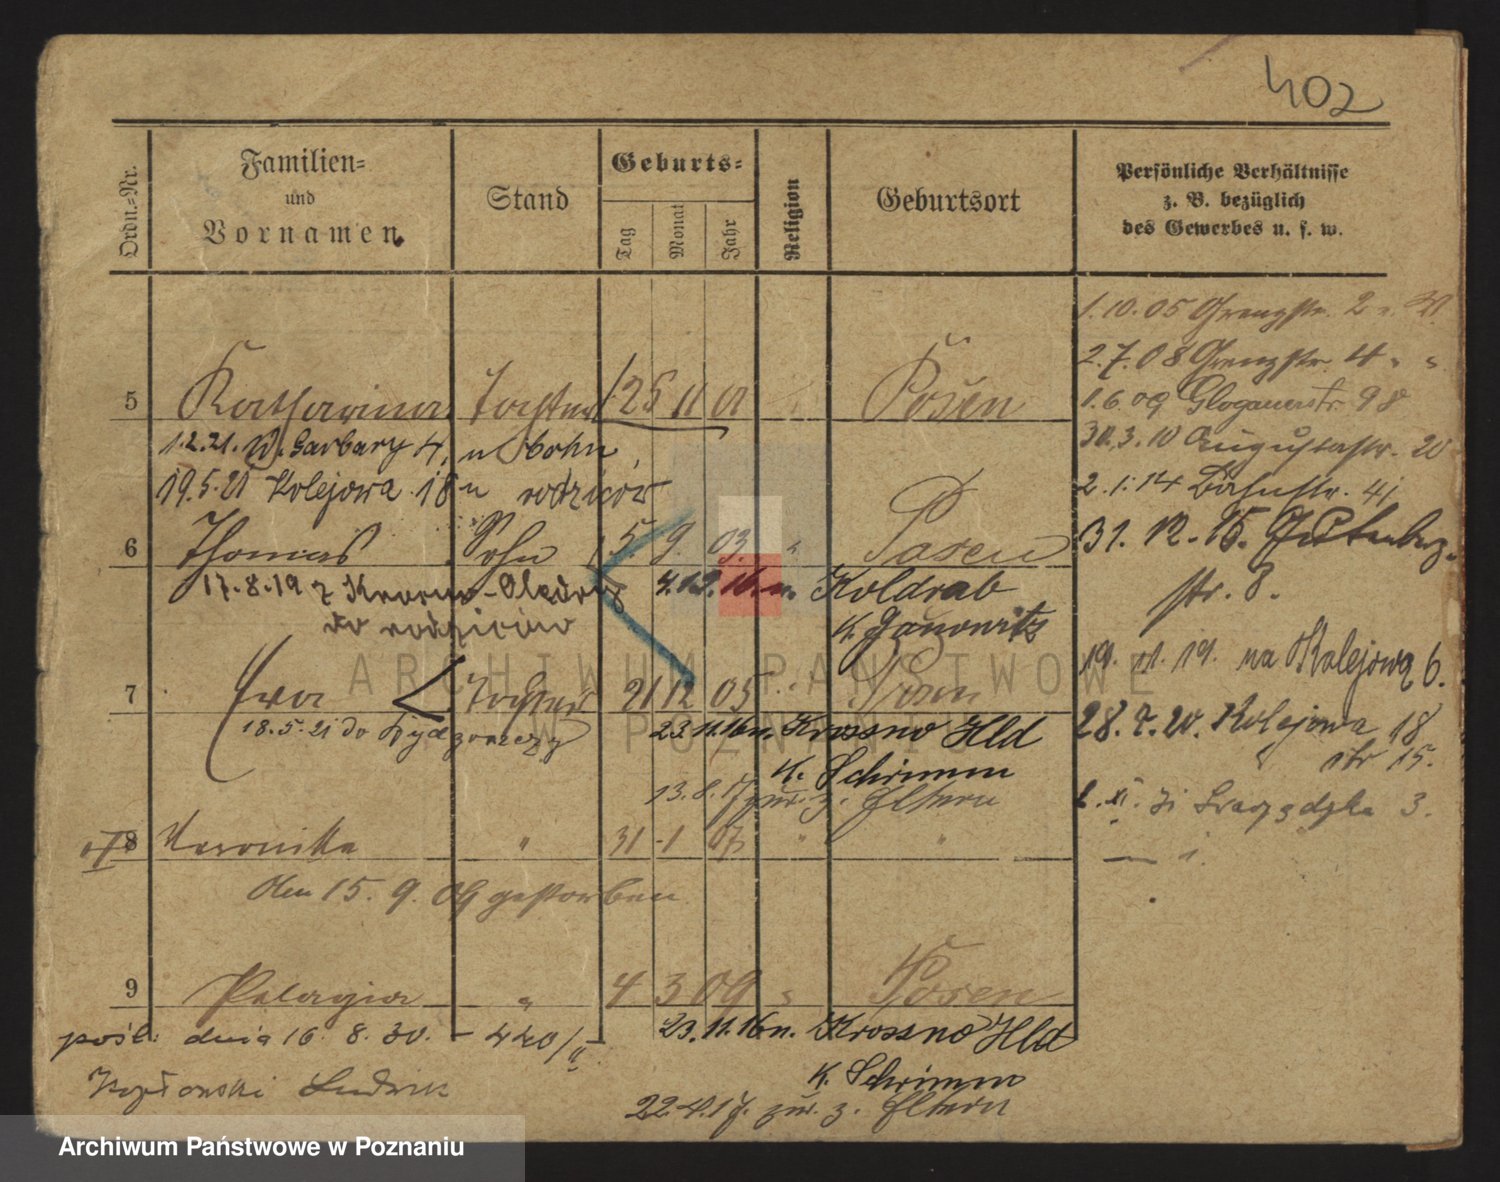 402
Ordn.-Nr.
Familien-
und
Vornamen
Stand
Geburts-
Tag
Monat
Jahr
Religion
Geburtsort
Persönliche Verhältnisse
z. B. bezüglich
des Gewerbes u. s. w.
1.10.05 Grenzstr. 2
2.7.08 Grenzstr. 4 " "
5 Katharina Tochter 25 11 01 Posen
1.6.09 Glogauerstr. 98
1.2.21. W. Garbary 4, u Bohn
30.3.10 Augustastr. 20
19.5.21 Kolejowa 18 u rodziców
2.1.14 Bahnstr. 41
6 Thomas Sohn 5. 9. 03. " Posen
31. 12. 15. Gutenberg-
str. 8.
17.8.19 z Krosno-Olędry
4.12.16. n. Koldrab
do rodziców
K. Janowitz
19. 11. 19. na Kolejową 6.
7 Ewa Tochter 21 12 05 " Posen
18.5.21 do
23.11.16 n. Krossno Hld
28. 7. 20. Kolejowa 18
K. Schrimm
13.8.17 zur. z. Eltern
3.
8 Veronika " 31 1 07 " "
den 15. 9. 09 gestorben
9 Pelagia " 4 3 09 " Posen
pośl. dnia 16. 8. 30. - 440/II
23.11.16 n. Krossno Hld
K. Schrimm
Ludwik
22.4.17. zur. z. Eltern
ARCHIWUM PAŃSTWOWE
W POZNANIU
Archiwum Państwowe w Poznaniu